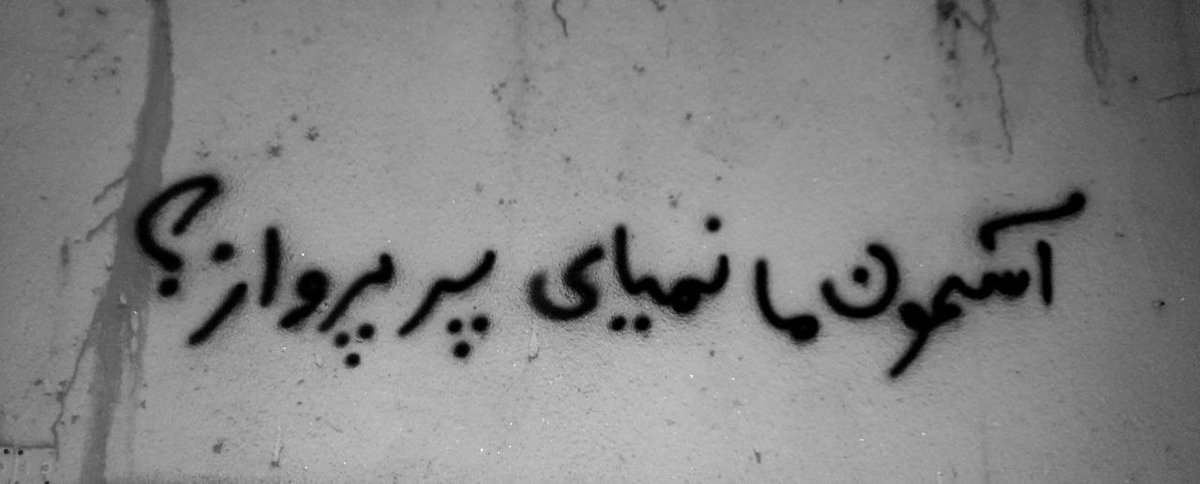 آسمون ما نمیای پر پرواز؟